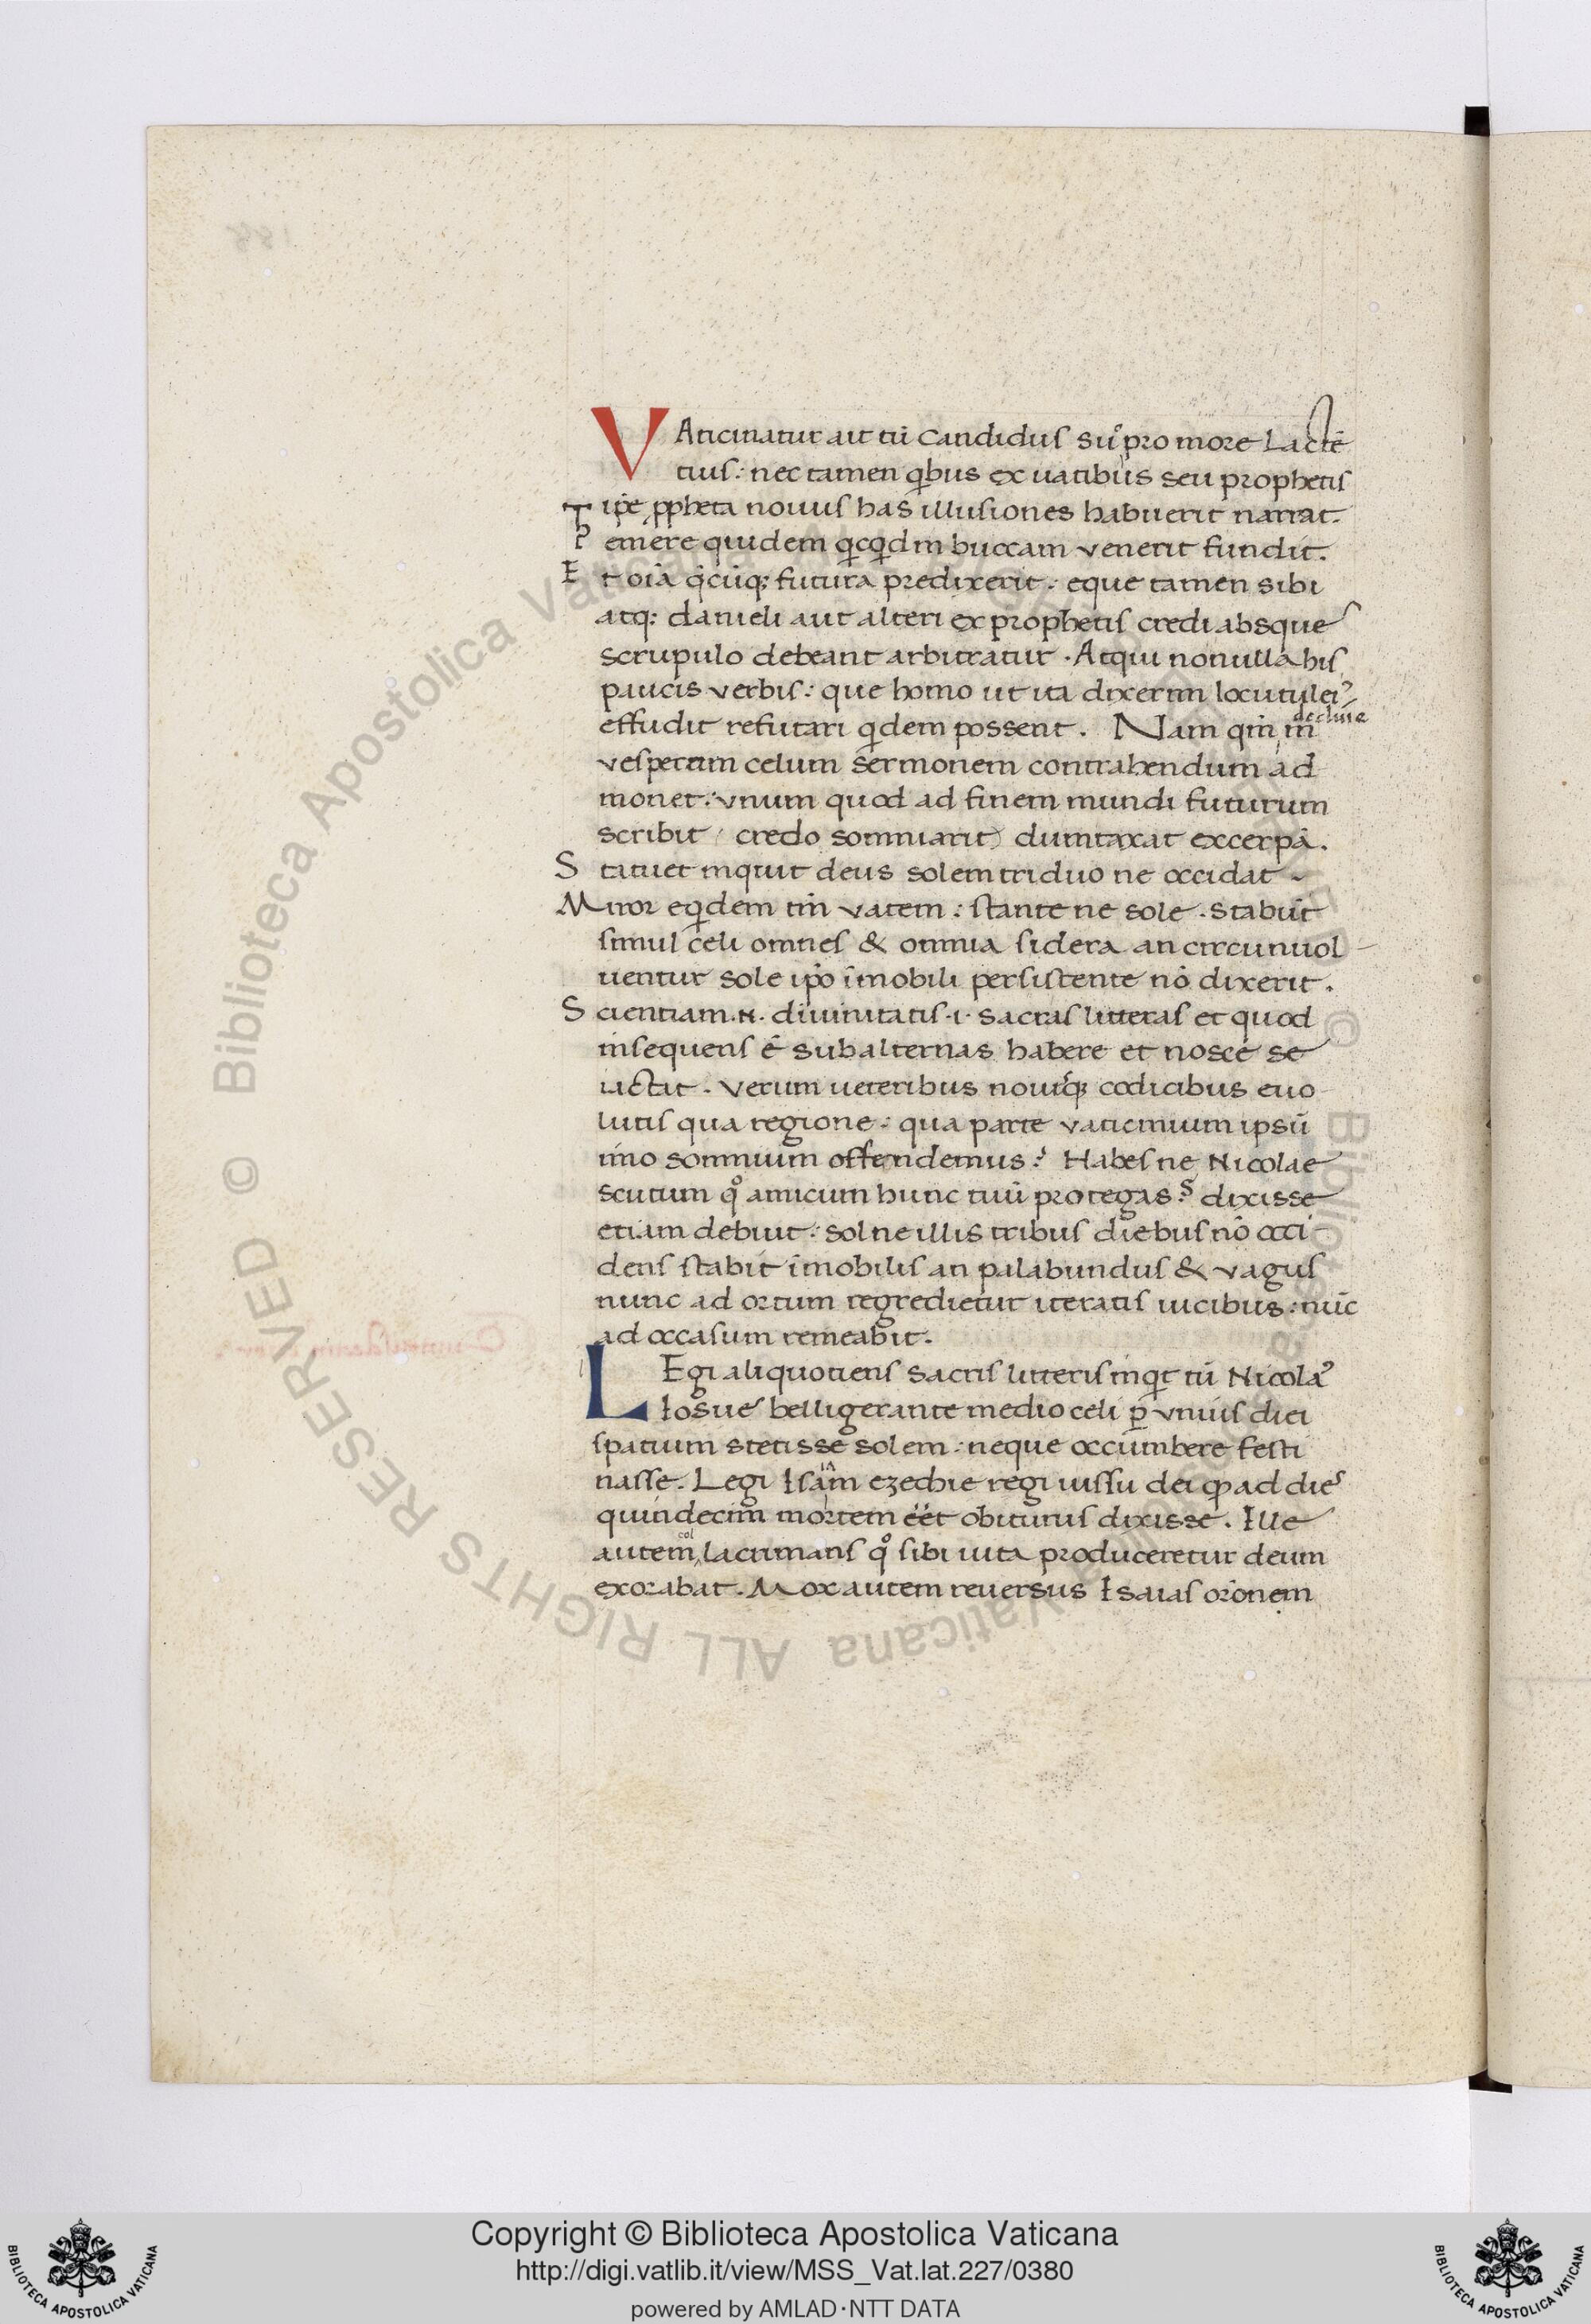 VAticinatur ait tū Candidus su᷒ pro more Lactē
tius: nec tamen qͥbus ex uatibus seu prophetis
ip̄e ꝓpheta nouus has illusiones habuerit narrat.
Temere quidem qͥcqͥd in buccam venerit fundit.
Et oīa q̄cūq; futura predixerit: eque tamen sibi
atq; danieli aut alteri ex prophetis credi absque
scrupulo debeant arbitratur. Atqui nonulla his
paucis verbis: que homo ut ita dixerim locutulei᷒
effudit refutari qͥdem possent. Nam qm̄ in
decliue
vesperum celum sermonem contrahendum ad
monet: vnum quod ad finem mundi futurum
scribit (credo somniarit) dumtaxat excerpā.
Statuet inquit deus solem triduo ne occidat
Miror eqͥdem tm̄ vatem: stante ne sole. Stabūt
simul celi omnes & omnia sidera an circunuol
uentur sole ip̄o īmobili persistente nō dixerit.
Scientiam .N. diuinitatis .i. sacras litteras et quod
insequens ē subalternas habere et nosce se
iactit. Verum ueteribus nouisq; codicibus euo
lutis qua regione: qua parte vaticinium ipsū
imo somnium offendemus? Habes ne Nicolae
scutum qͦ amicum hunc tuū protegas? dixisse
etiam debuit: sol ne illis tribus diebus nō occi
dens stabit īmobilis an palabundus & vagus
nunc ad ortum regredietur iteratis uicibus: nūc
ad occasum remeabit.
LEgi aliquotiens sacris litteris inqͥt tū Nicola᷒
Iosue belligerante medio celi ꝑ vnius diei
spatium stetisse solem: neque occumbere festi
nasse. Legi Isaīam ezechie regi iussu dei ꝙ ad dies
quindecim mortem eēt obiturus dixisse. Ille
col
autem lacrimans qͦ sibi uita produceretur deum
exorabat. Mox autem reuersus Isaias orōnem
Copyright © Biblioteca Apostolica Vaticana
http://digi.vatlib.it/view/MSS_Vat.lat.227/0380
powered by AMLAD·NTT DATA